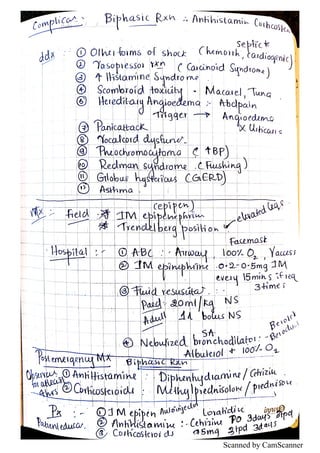 Complica: Biphasic Rxn ∴ Antihistamin Corticoster
septic
ddx : ① Other forms of shock (hemorrh, cardiogenic)
② Vasopressor rxn (Carcinoid Syndrome)
③ ↑ Histamine Syndrome
④ Scombroid toxicity - Macarel, Tuna
⑥ Hereditary Angioedema :- Abdpain
Trigger → Angioedema
x Urticaris
⑦ Panicattack
⑧ Vocalcord dysfunc.
⑨ Pheochromocytoma (↑BP)
⑩ Redman syndrome (flushing)
⑪ Globus hystericus (GERD)
⑫ Asthma.
(epipen)
Mx :- field IM epinephrin
Trendelberg position - elevated legs
Facemask
Hospital :- ① ABC :- Airway, 100% O2, Vaccess
② IM epinephrine 0.2-0.5mg IM
every 15mins if req
3 times
③ Fluid resuscita :-
Paed: 20ml/kg NS
Adult 1L bolus NS
SA
④ Nebulized bronchodilator:-
Albuterol + 100% O2
Postemergency Mx Biphasic Rxn
① Antihistamine : Diphenhydramine / Cetrizine
② Corticosteroids : Methylprednisolon / prednison
4hrs
① IM epipen Autoinjector Loratidin
② Antihistamine :- Cetrizine PO 3days
③ Corticosteroids 3days
Scanned by CamScanner